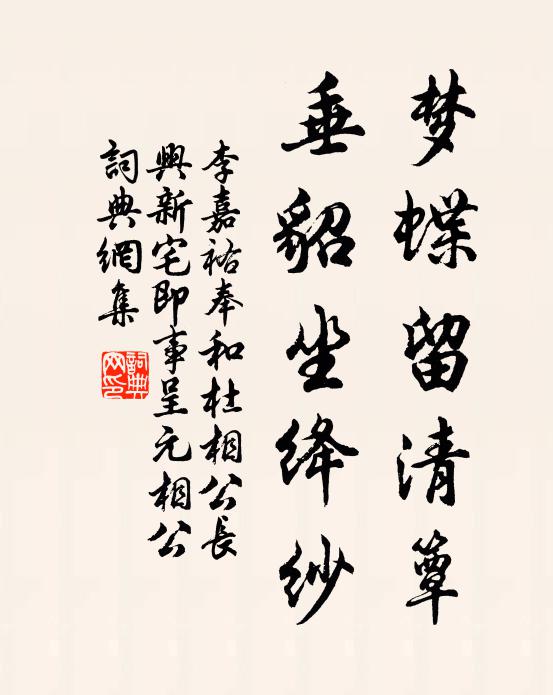 梦蝶留清簟
垂貂坐绛纱
李嘉祐奉和杜相公長
興新宅即事呈元相公
詞典網集
詞典網印